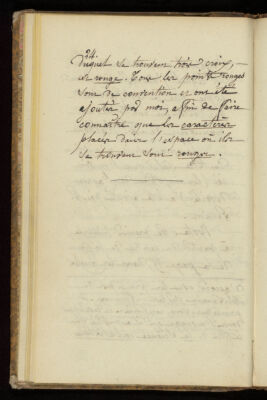 24.
duquel se trouvent trois croix,
et rouge. Tous les points rouges
sont de convention et ont été
ajoutés par moi, afin de faire
connaître que les caractères
placés dans l'espace où ils
se trouvent sont rouges.